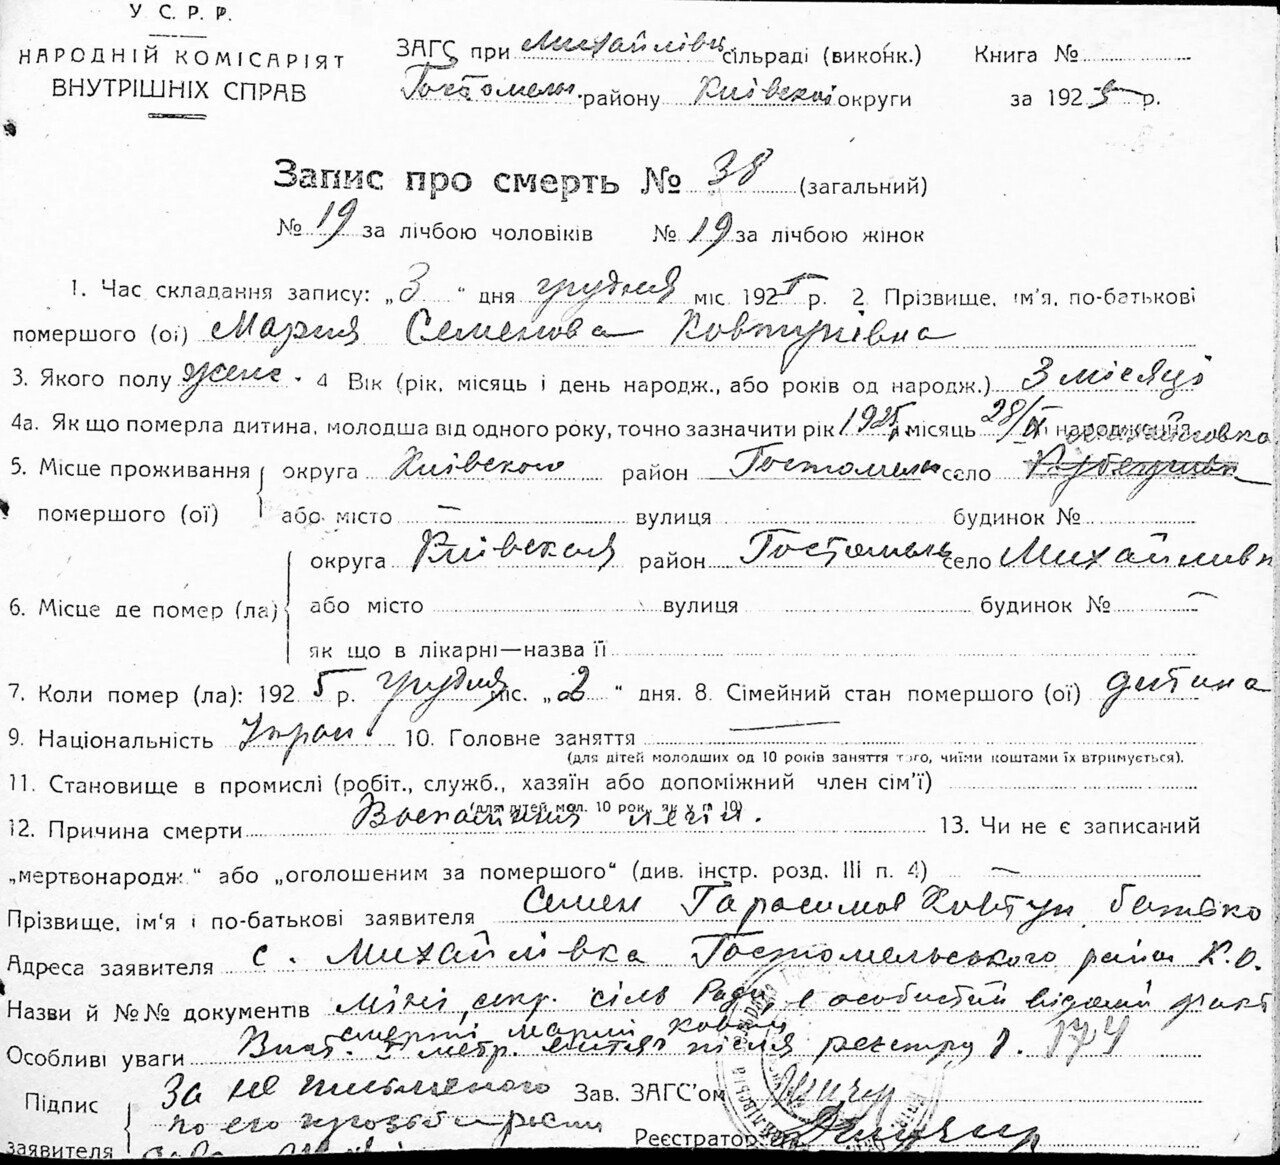 У С. Р. Р.
НАРОДНІЙ КОМІСАРІЯТ
ВНУТРІШНІХ СПРАВ
ЗАГС при Михайлівц. сільраді (виконк.)
Гостомель. району Київской округи
Книга №
за 1925 р.
Запис про смерть № 38 (загальний)
№ 19 за лічбою чоловіків № 19 за лічбою жінок
1. Час складання запису: „3" дня грудня міс 1925 р. 2 Прізвище, ім'я, по-батькові
помершого (ої) Мария Семенова Ковтунівна
3. Якого полу женс. 4 Вік (рік, місяць і день народж., або років од народж.) 3 місяці
4а. Як що померла дитина, молодша від одного року, точно зазначити рік 1925 місяць 28/ІХ народження
5. Місце проживання помершого (ої) округа Київского район Гостомель село
або місто — вулиця будинок №
6. Місце де помер (ла) округа Київская район Гостомель село Михайливк
або місто вулиця будинок № —
як що в лікарні—назва її
7. Коли помер (ла): 1925 р. грудня міс. „2" дня. 8. Сімейний стан помершого (ої) дитина
9. Національність Украи. 10. Головне заняття —
(для дітей молодших од 10 років заняття того, чиїми коштами їх втримується).
11. Становище в промислі (робіт., служб., хазяїн або допоміжний член сім'ї)
(для дітей мол. 10 рок. як у п 10)
12. Причина смерти легія. 13. Чи не є записаний
„мертвонародж" або „оголошеним за помершого" (див. інстр. розд. III п. 4) —
Прізвище, ім'я і по-батькові заявителя Семен Гарасимов Ковтун батько
Адреса заявителя с. Михайлівка Гостомельського район К.О.
Назви й №№ документів мині секр. сіль Ради є особистий відомий факт
смерті Марії Ковтун
Особливі уваги метр. після реєстру 1. 174
Підпис заявителя За не письменого
по его прозьби
Зав. ЗАГС'ом
Реєстратор